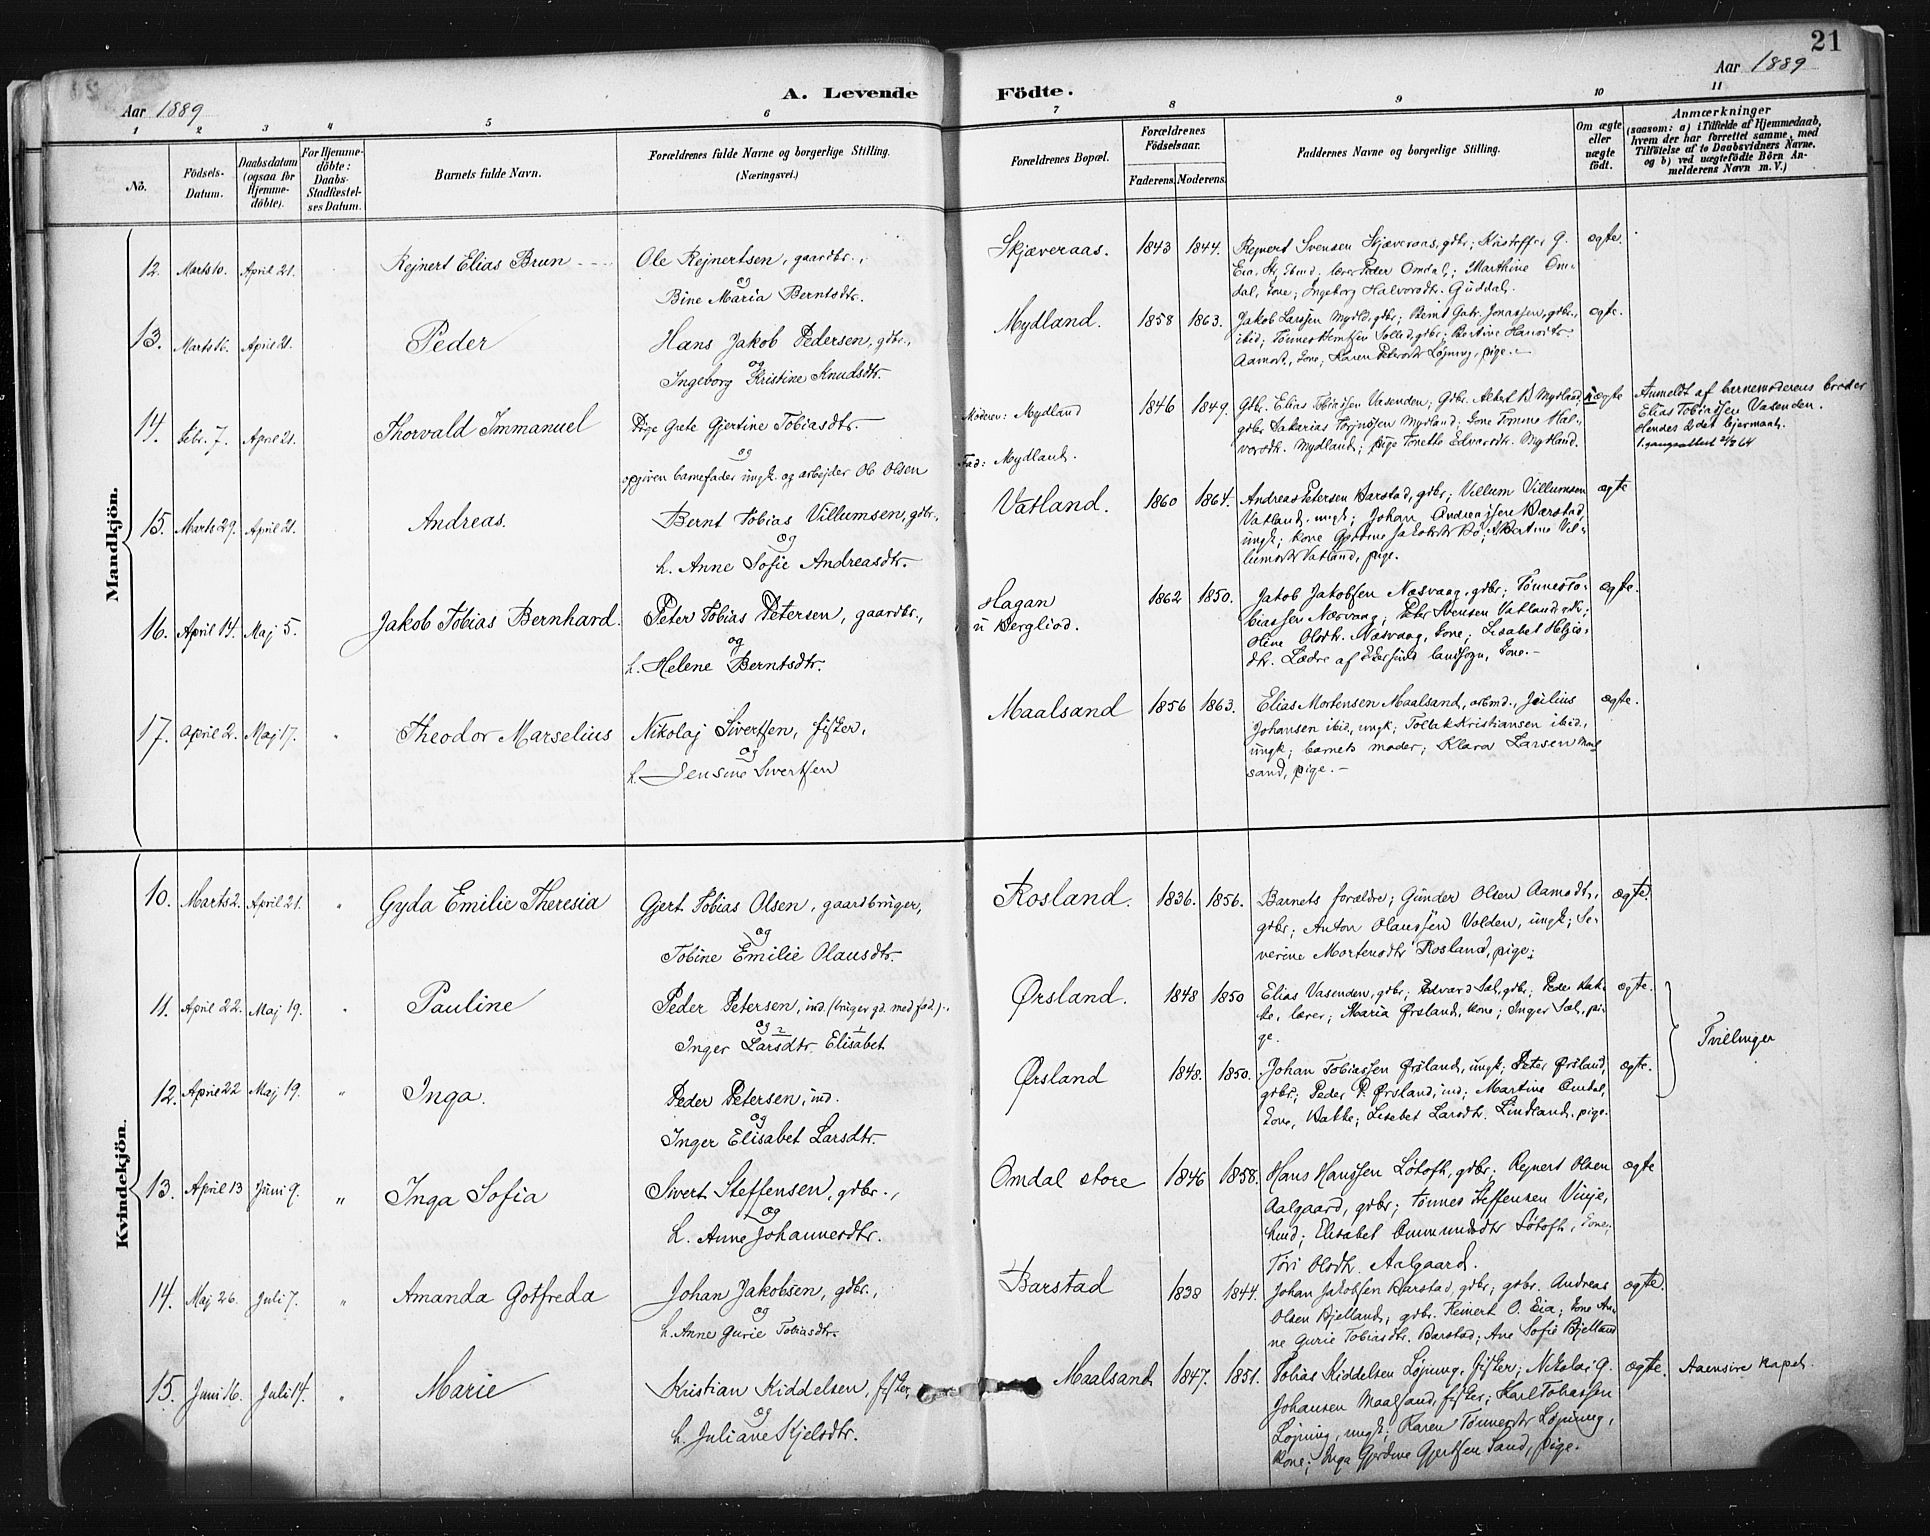 21
Aar 1889
A. Levende Födte.
Aar 1889
1 2 3 4 5 6 7 8 9 10 11
No.
Födsels-Datum.
Daabsdatum (ogsaa for Hjemme-döbte).
For Hjemme-döbte: Daabs-Stadfæstel-ses Datum.
Barnets fulde Navn.
Forældrenes fulde Navne og borgerlige Stilling.
(Næringsvei.)
Forældrenes Bopæl.
Forældrenes Födselsaar.
Faderens. Moderens.
Faddernes Navne og borgerlig Stilling.
Om ægte eller uægte födt.
Anmærkninger
(saasom: a) i Tilfælde af Hjemmedaab,
hvem der har forrettet samme, med
Tilföielse af to Daabsvidners Navne,
og b) ved uægtefödte Börn An-
melderens Navn m. V.)
Mandkjön.
12. Marts 10. April 21. Rejnert Elias Brun
Ole Rejnertsen, gaardbr.,
og
Bine Maria Berntsdtr.
Skjæveraas. 1843 1844.
Rejnert Svensen Skjæveraas, gdbr.; Kristoffer G.
Eia, lærer Peder Omdal; Marthine Om-
dal, kone; Ingeborg Halvorsdtr. Guddal.
ægte.
13. Marts 16. April 21. Peder
Hans Jakob Pedersen, gdbr.,
og
Ingeborg Kristine Knudsdtr.
Mydland. 1858 1863.
Jakob Larssen Mydld, gdbr.; Bernt Gabr. Jonassen, gdbr.,
ibid; Tønnes Berntsen; Bertine Hansdtr.
Aamodt, kone; Karen Petersdtr Løjning, pige.
ægte.
14. Febr. 7. April 21. Thorvald Immanuel
Pige Grete Gjertine Tobiasdtr.
og
opgiven barnefader ungk. og arbejder Ole Olsen
Moderen: Mydland
Fad: Mydland.
1846 1849.
Gdbr. Elias Tobiassen Vasenden; Gdbr. Albert Mydland,
gdbr Sakarias Torjussen Mydland; kone Tomine Hal-
vorsdtr. Mydland; pige Tonette Edvardsdtr. Mydland.
uægte
Anmeldt af barnemoderens broder
Elias Tobiassen Vasenden.
Hendes 2det lejermaal,
15. Marts 29. April 21. Andreas.
Bernt Tobias Villumsen, gdbr.,
og
h. Anne Sofie Andreasdtr.
Vatland. 1860 1864.
Andreas Petersen Barstad, gdbr; Villum Villumsen
Vatland, ungk; Johan Andreassen Barstad,
ungk; kone Gjertine Jakobsdtr Bø; Albertine Vil-
lumsdtr Vatland, pige.
ægte
16. April 14. Maj 5. Jakob Tobias Bernhard.
Peter Tobias Petersen, gaardbr.,
og
h. Helene Berntsdtr.
Hagan
u Bergliod.
1862 1850.
Jakob Jakobsen Næsvaag, gdbr; Tønnes To-
biassen Næsvaag; Peter Svensen Vatland, gdbr;
Oline Olsdtr. Næsvaag, kone; Lisabet Helgis-
dtr. Lædre af Ekersund landsogn, kone.-
ægte.
17. April 2. Maj 17. " Theodor Marselius
Nikolaj Sivertsen, fisker,
og
h. Jensine Sivertsen
Maalsand 1856 1863.
Elias Mortensen Maalsand, arbmd., Julius
Johansen ibid, ungk; Tollak Kristiansen ibid,
ungk; barnets moder; Klara Larsen Maal-
sand, pige.-
ægte.
Kvindekjön.
10. Marts 2. April 21. " Gyda Emilie Theresia
Gjert Tobias Olsen, gaardbruger,
og
Tobine Emilie Olausdtr.
Rosland. 1836. 1856.
Barnets forældre; Gunder Olsen Aamodt,
gdbr; Anton Olaussen Valden, ungk; Se-
verine Mortensdtr Rosland, pige;
ægte.
11. April 22. Maj 19. " Pauline
Peder Petersen, ind. (bruger gd. med fad.).,
og
2 1
Inger Larsdtr. Elisabet
Ørsland. 1848 1850
Elias Vasenden, gdbr; Edvard Sæl, gdbr; Peder Bak-
ke, lærer; Maria Ørsland, kone; Inger Sæl, pi-
ge.
ægte.
Tvillinger
12. April 22 Maj 19. " Inga.
Peder Petersen, ind.
og
Inger Elisabet Larsdtr.
Ørsland 1848. 1850.
Johan Tobiassen Ørsland, ungk; Peter Ørsland,
gdbr; Peder P. Ørsland, ind; Martine Omdal,
kone, Bakke; Lisabet Larsdtr. Lindland, pige.
ægte.
13. April 13 Juni 9. " Inga Sofia
Sivert Steffensen, gdbr.,
og
h. Anne Johannesdtr.
Omdal store 1846 1858.
Hans Hanssen Løtoft, gdbr. Rejnert Olsen
Aalgaard, gdbr; Tønnes Steffensen Vinje,
hmd; Elisabet Ommundsdtr Løtoft, kone;
Tori Olsdtr. Aalgaard.
ægte
14. Maj 26. Juli 7. " Amanda Gotfreda
Johan Jakobsen, gdbr.,
og
h. Anne Gurie Tobiasdtr.
Barstad 1838 1844.
Johan Jakobsen Barstad, gdbr; gdbr. Andreas
Olsen Bjelland, gdbr. Reinert O. Eia; kone An-
ne Gurie Tobiasdtr. Barstad; Ane Sofie Bjelland
ægte.
15. Juni 16. Juli 14. " Marie
Kristian Kiddelsen, fisker,
og
h. Juliane Kjelsdtr.
Maalsand 1847. 1851.
Tobias Kiddelsen Løjning, fisker; Nikolaj G.
Johansen Maalsand, fisker; Karl Tobiassen
Løjning, ungk; Karen Tønnesdtr Løjning,
kone; Inga Gjerdine Gjertsen Sand, pige.
ægte.
Aaensire Kapel.